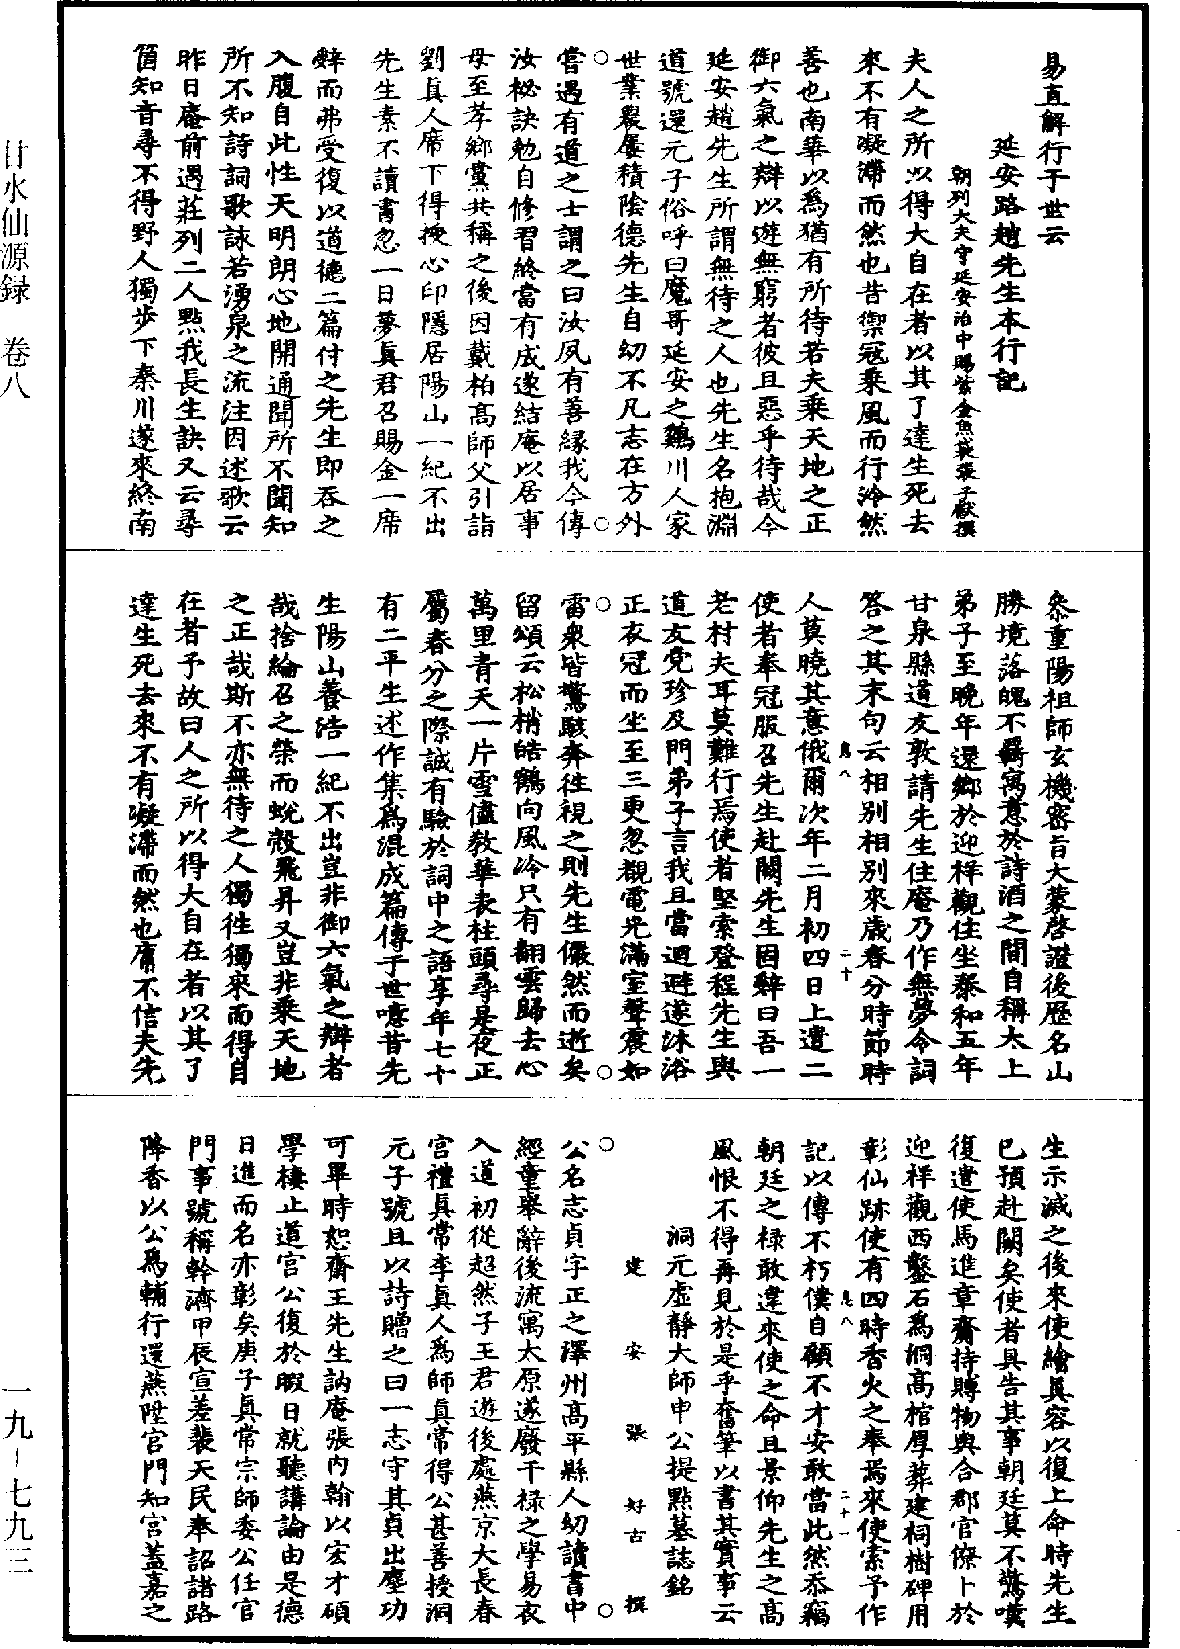 易直解行于世云
延安路趙先生本行記
朝列大夫守延安治中賜紫金魚袋張子獻撰
夫人之所以得大自在者以其了達生死去
來不有凝滯而然也昔禦寇乘風而行泠然
善也南華以爲猶有所待若夫乘天地之正
御六氣之辯以遊無窮者彼且惡乎待哉今
延安趙先生所謂無待之人也先生名抱淵
道號還元子俗呼曰魔哥延安之鷄川人家
世業農屢積陰德先生自幼不凡志在方外
嘗遇有道之士謂之曰汝夙有善緣我今傳
汝祕訣勉自修習終當有成遂結庵以居事
母至孝鄉黨共稱之後因戴柏高師父引詣
劉真人席下得授心印隱居陽山一紀不出
先生素不讀書忽一日夢真君召賜金一席
辭而弗受復以道德二篇付之先生即吞之
入腹自此性天明朗心地開通聞所不聞知
所不知詩詞歌詠若湧泉之流注因述歌云
昨日庵前遇莊列二人點我長生訣又云尋
箇知音尋不得野人獨步下秦川遂來終南
叅重陽祖師玄機密旨大蒙啓證後歷名山
勝境落魄不羈寓意於詩酒之間自稱太上
弟子至晚年還鄉於迎祥觀住坐泰和五年
甘泉縣道友敦請先生住庵乃作無夢令詞
答之其末句云相別相別來歲春分時節時
人莫曉其意俄爾次年二月初四日上遣二
使者奉冠服召先生赴闕先生固辭曰吾一
老村夫耳莫難行焉使者堅索登程先生與
道友党珍及門弟子言我且當迴避遂沐浴
正衣冠而坐至三更忽覩電光滿室聲震如
雷衆皆驚駭奔往視之則先生儼然而逝矣
留頌云松梢皓鶴向風泠只有翻雲歸去心
萬里青天一片雪儘教華表柱頭尋是夜正
屬春分之際誠有驗於詞中之語享年七十
有二平生述作集爲混成篇傳于世噫昔先
生陽山養浩一紀不出豈非御六氣之辯者
哉捨綸召之榮而蛻殼飛昇又豈非乘天地
之正哉斯不亦無待之人獨往獨來而得自
在者乎故曰人之所以得大自在者以其了
達生死去來不有凝滯而然也庸不信夫先
生示滅之後來使繪真容以復上命時先生
已預赴闕矣使者具告其事朝廷莫不驚嘆
復遣使馬進章齎持賻物與合郡官僚卜於
迎祥觀西鑿石爲㓊高棺厚葬建祠樹碑用
彰仙跡使有四時香火之奉焉來使索予作
記以傳不朽僕自顧不才安敢當此然忝竊
朝廷之祿敢違來使之命且景仰先生之高
風恨不得再見於是乎奮筆以書其實事云
洞元虛靜大師申公提點墓誌銘
建安張好古撰
公名志貞字正之澤州高平縣人幼讀書中
經童舉辭後流寓太原遂廢干祿之學易衣
入道初從超然子王君遊後處燕京大長春
宮禮真常李真人爲師真常得公甚善授洞
元子號且以詩贈之曰一志守其貞出塵功
可畢時恕齋王先生訥庵張內翰以宏才碩
學棲止道宮公復於暇日就聽講論由是德
日進而名亦彰矣庚子真常宗師委公任官
門事號稱幹濟甲辰宣差裴天民奉詔諸路
降香以公爲輔行還燕陞宮門知宮蓋嘉之
息八
二十
息八
二十一
甘水仙源録 卷八
一九-七九三